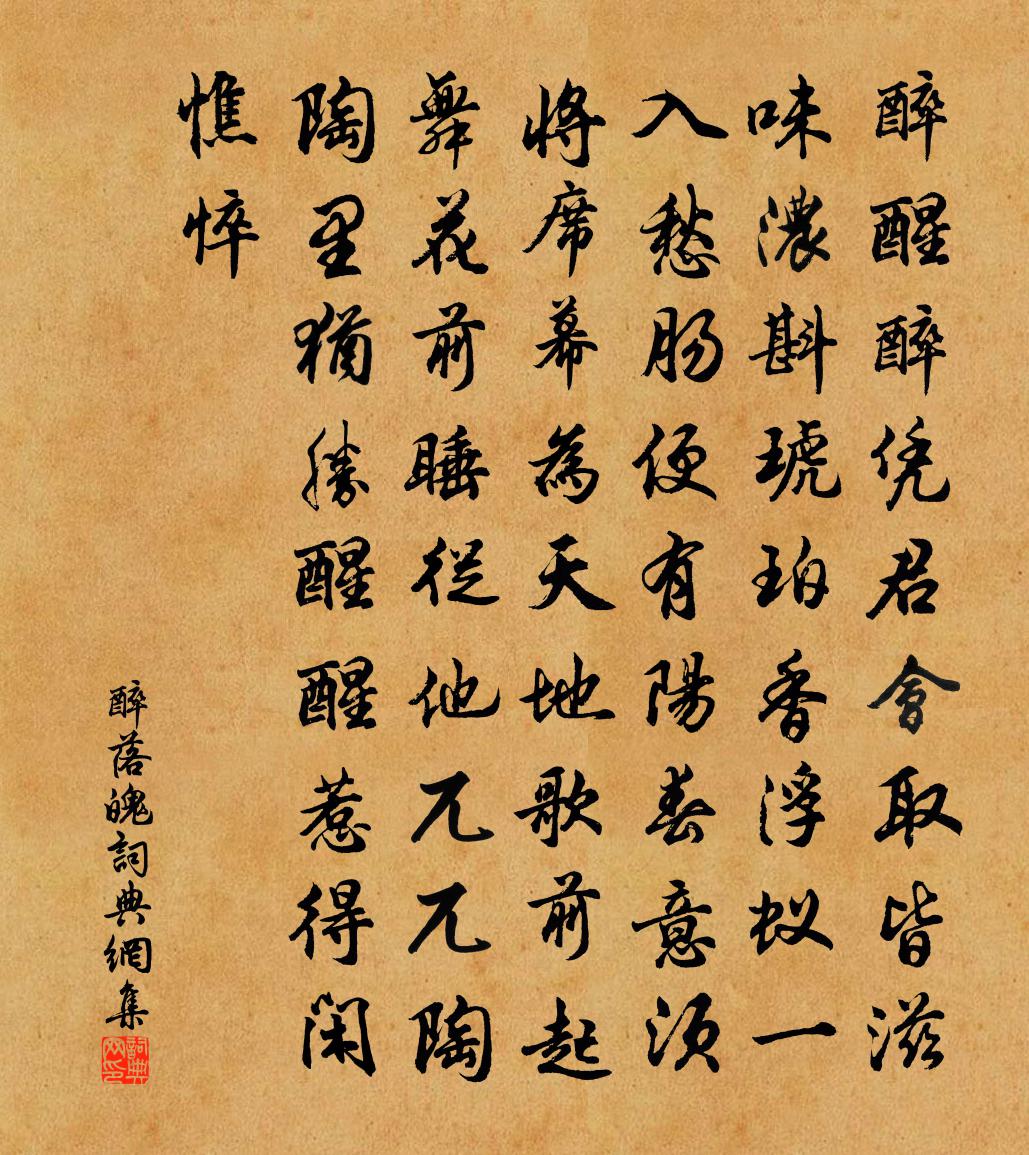 醉醒醉凭君會取皆滋
味濃斟琥珀香浮蚁一
入愁肠便有陽春意須
將席幕為天地歌前起
舞花前睡從他兀兀陶
陶里猶勝醒醒惹得閑
憔悴
醉落魄詞典網集
詞典网印